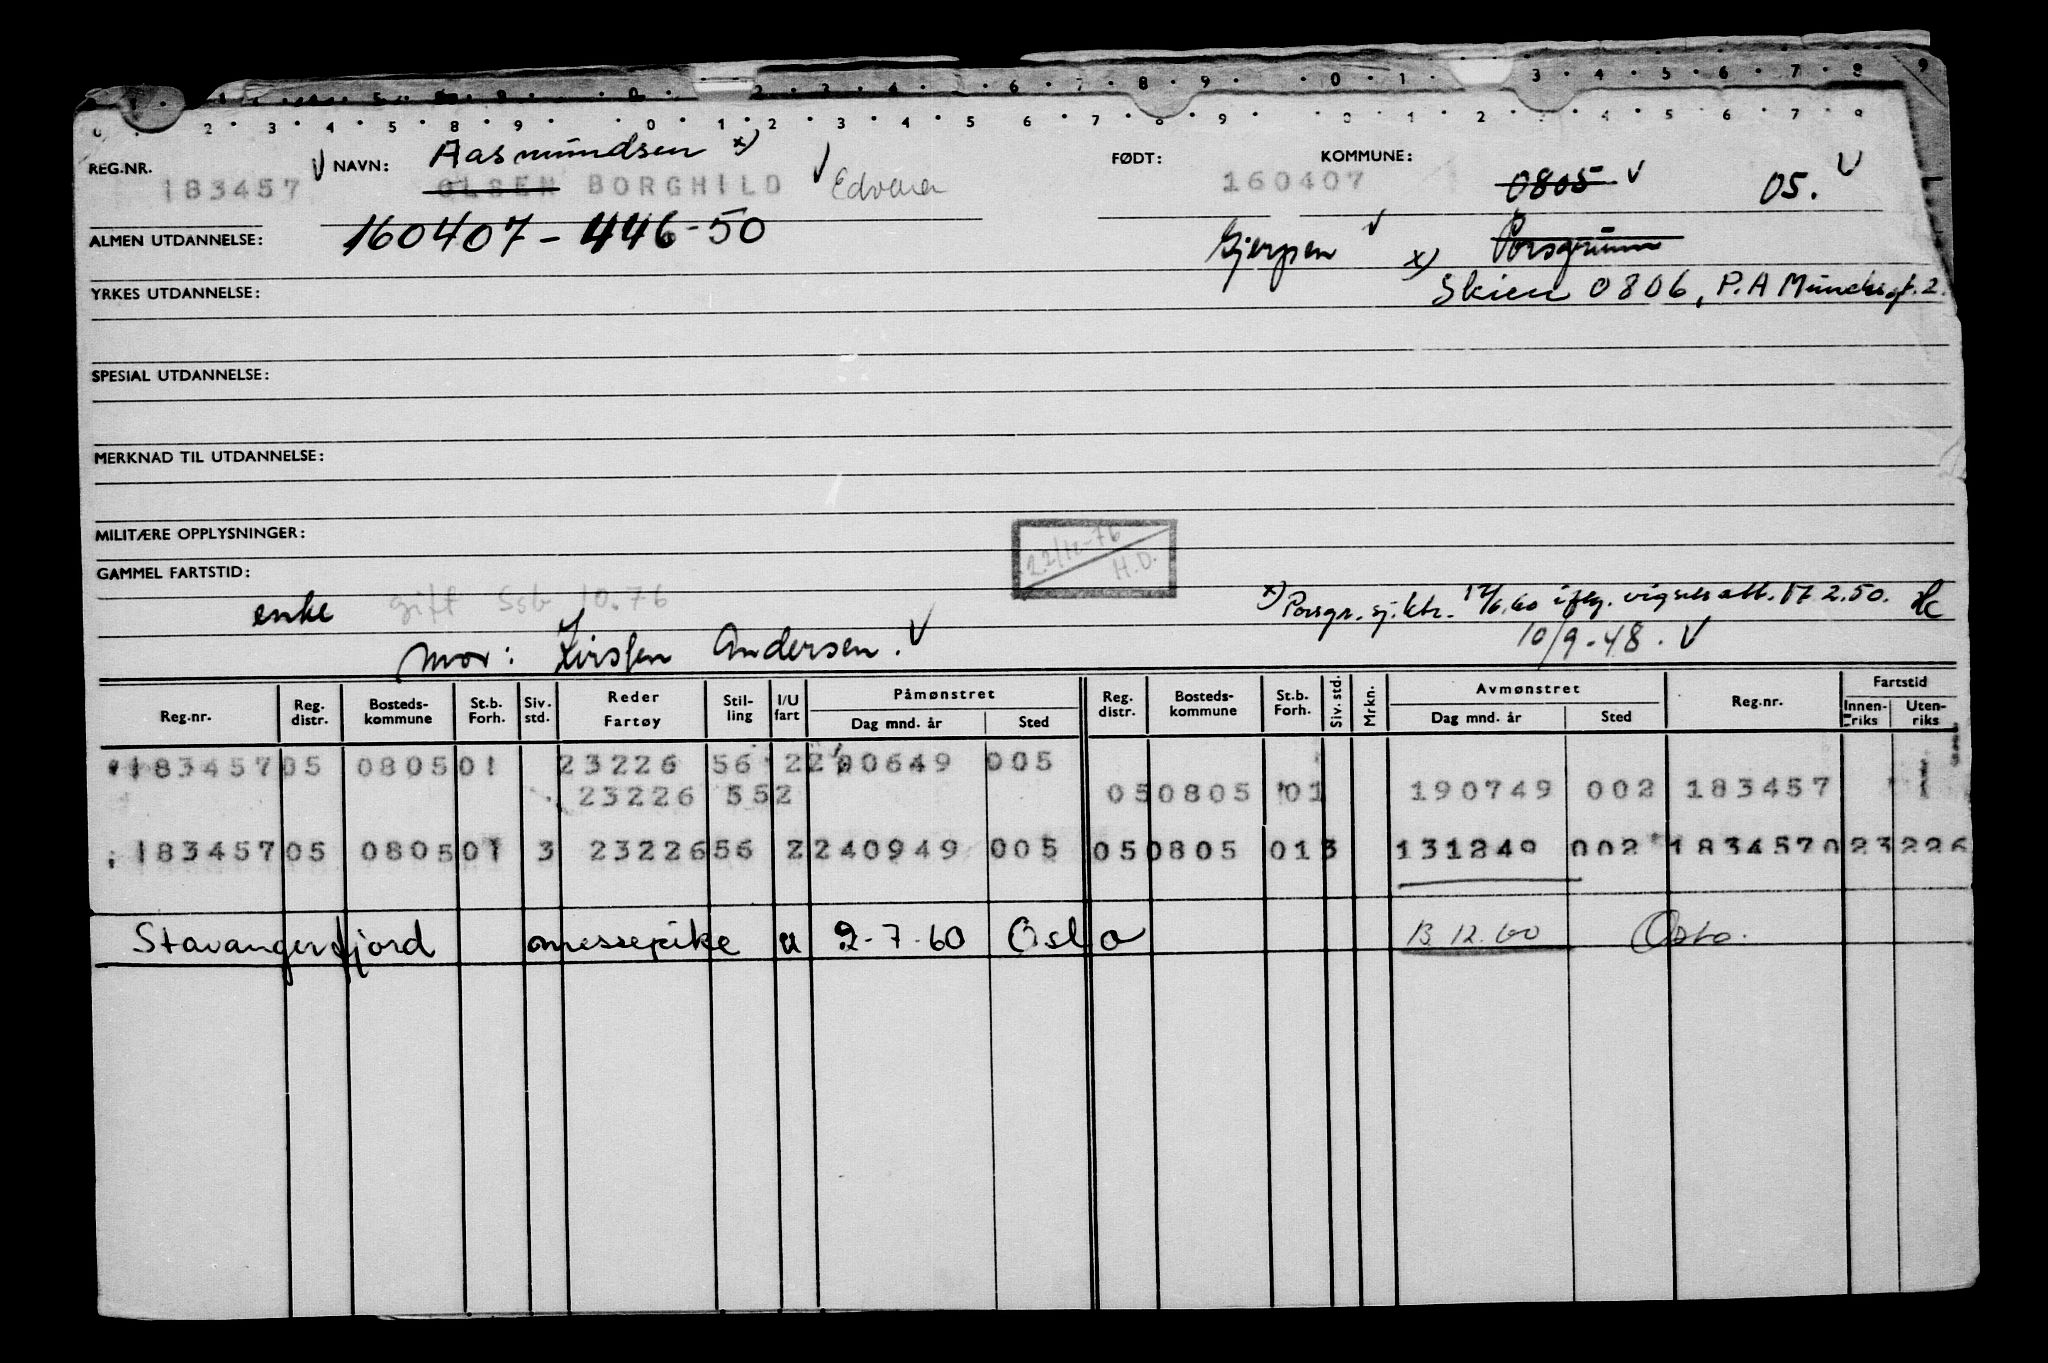 REG.NR. 183457 V NAVN: Aasmundsen x)
OLSEN BORGHILD V FØDT: 160407 KOMMUNE: 0805 V 05. V
ALMEN UTDANNELSE: 160407 - 446-50 Gjerpen V x) Porsgrunn
YRKES UTDANNELSE: Skien 0806, P.A Munchsgt. 2.
SPESIAL UTDANNELSE:
MERKNAD TIL UTDANNELSE:
MILITÆRE OPPLYSNINGER: 22/12-76
H.D.
GAMMEL FARTSTID:
enke gift Ssb 10.76 x) Porsgr. sj.ktr. 17/6.60 iflg. vigselsatt. 17 2.50. Hc
mor: Kirsten Andersen. V 10/9-48. V
Reg.nr. Reg. distr. Bosteds- kommune St.b. Forh. Siv. std. Reder Fartøy Stil- ling I/U fart Påmønstret Dag mnd. år Sted Reg. distr. Bosteds- kommune St.b. Forh. Siv. std. Mrkn. Avmønstret Dag mnd. år Sted Reg.nr. Fartstid Innen- riks Uten- riks
183457 05 0805 01 23226 56 2 0649 005
23226 55 2 05 0805 01 190749 002 183457 1
183457 05 0805 01 3 23226 56 2 240949 005 05 0805 01 3 131249 002 183457 0 23226
Stavangerfjord messepike u 2-7-60 Oslo 13 12.60 Oslo.